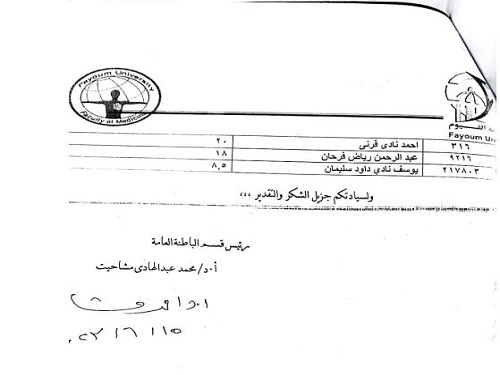 Fayoum University
Faculty of Medicine
Fayoum Un
٣١٦ احمد نادى قرنى ٢٠
٩٢١٦ عبد الرحمن رياض فرحان ١٨
٢١٧٨٠٣ يوسف نادي داود سليمان ٨,٥
ولسيادتكم جزيل الشكر والتقدير ,,,
رئيس قسم الباطنة العامة
أ.د/ محمد عبدالهادى مشاحيت